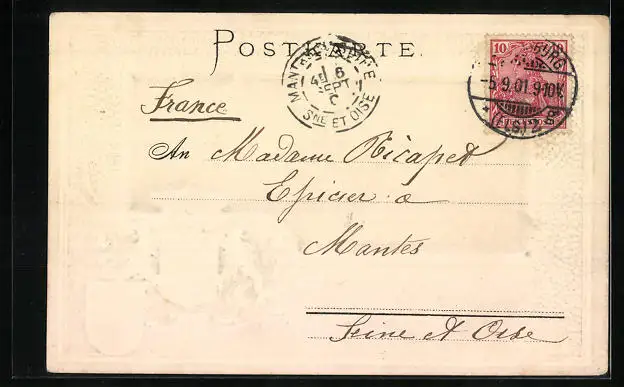 POSTKARTE.
MANTES-S-SEINE
6
SEPT
SNE ET OISE
10
BURG
-5.9.01.9-10V.
(ELS) 2
France
An Madame Ricapet
Epicier à
Mantes
Seine et Oise